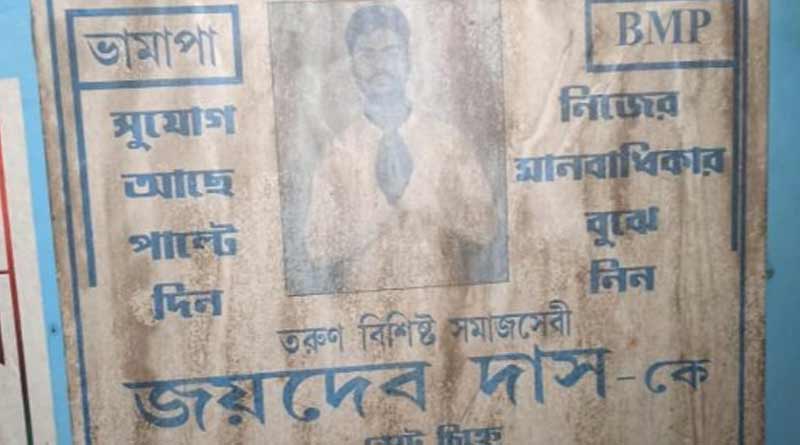 ভামাপা
BMP
সুযোগ
আছে
পাল্টে
দিন
নিজের
মানবাধিকার
বুঝে
নিন
তরুণ বিশিষ্ট সমাজসেবী
জয়দেব দাস-কে